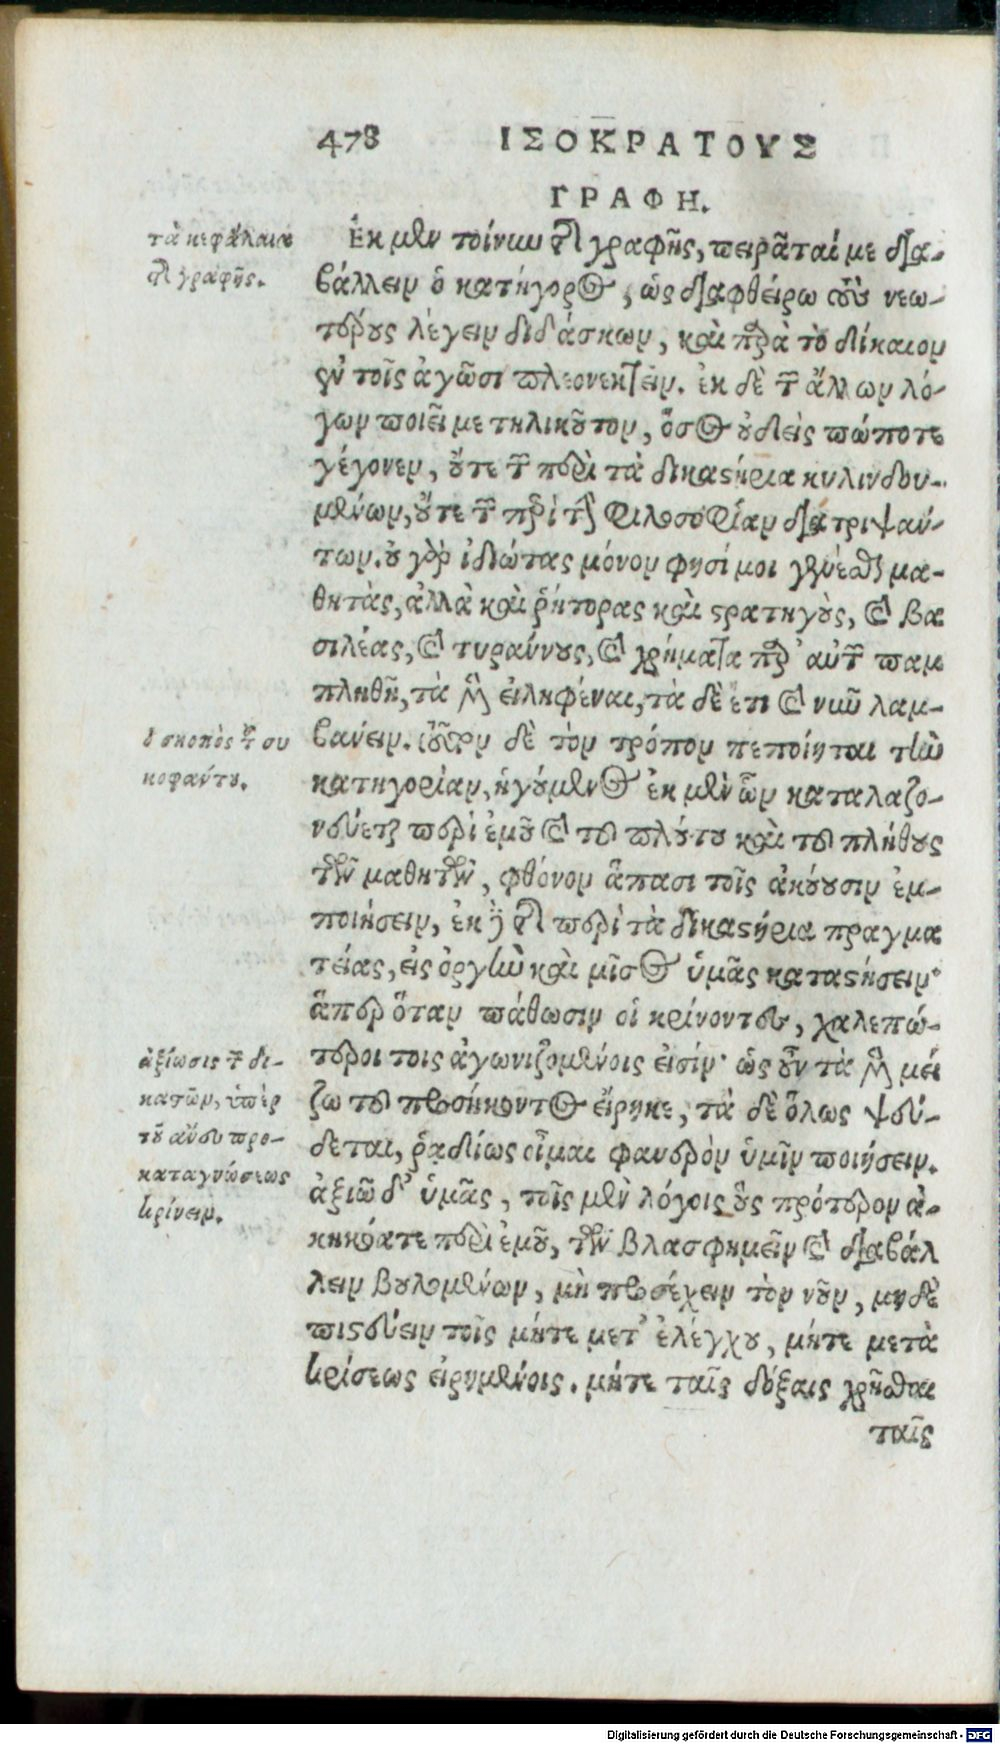 478 ΙΣΟΚΡΑΤΟΥΣ
ΓΡΑΦΗ.
τὰ κεφάλαια
τῆς γραφῆς.
Ἐκ μὲν τοίνυν τῆς γραφῆς, πειρᾶταί με δια-
βάλλειν ὁ κατήγορος, ὡς διαφθείρω τοὺς νεω-
τέρους λέγειν διδάσκων, καὶ παρὰ τὸ δίκαιον
ἐν τοῖς ἀγῶσι πλεονεκτεῖν. ἐκ δὲ τῶν ἄλλων λό-
γων ποιεῖ με τηλικοῦτον, ὅσος οὐδεὶς πώποτε
γέγονεν, οὔτε τῶν περὶ τὰ δικαστήρια κυλινδου-
μένων, οὔτε τῶν περὶ τὴν φιλοσοφίαν διατριψάν-
των. οὐ γὰρ ἰδιώτας μόνον φησί μοι γενέσθαι μα-
θητὰς, ἀλλὰ καὶ ῥήτορας καὶ στρατηγοὺς, καὶ βα
σιλέας, καὶ τυράννους, καὶ χρήματα παρ' αὐτῶν παμ
πληθῆ, τὰ μὲν εἰληφέναι, τὰ δὲ ἔτι καὶ νῦν λαμ-
βάνειν. τοῦτον δὲ τὸν τρόπον πεποίηται τὴν
ὁ σκοπὸς τοῦ συ
κοφαντου.
κατηγορίαν, ἡγούμενος ἐκ μὲν ὧν καταλαζο-
νεύεται περὶ ἐμοῦ καὶ τοῦ πλούτου καὶ τοῦ πλήθους
τῶν μαθητῶν, φθόνον ἅπασι τοῖς ἀκούουσιν ἐμ-
ποιήσειν, ἐκ δὲ τῆς περὶ τὰ δικαστήρια πραγμα
τείας, εἰς ὀργὴν καὶ μῖσος ὑμᾶς καταστήσειν·
ἅπερ ὅταν πάθωσιν οἱ κρίνοντες, χαλεπώ-
τεροι τοις ἀγωνιζομένοις εἰσίν· ὡς οὖν τὰ μὲν μεί
ἀξίωσις τῶν δι-
κασῶν, ὑπὲρ
τοῦ ἄνευ προ-
καταγνώσεως
κρίνειν.
ζω τοῦ προσήκοντος εἴρηκε, τὰ δὲ ὅλως ψεύ-
δεται, ῥαδίως οἶμαι φανερὸν ὑμῖν ποιήσειν.
ἀξιῶ δ' ὑμᾶς, τοῖς μὲν λόγοις οὓς πρότερον ἀ-
κηκόατε περὶ ἐμοῦ, τῶν βλασφημεῖν καὶ διαβάλ
λειν βουλομένων, μὴ προσέχειν τὸν νοῦν, μηδὲ
πιστεύειν τοῖς μήτε μετ' ἐλέγχου, μήτε μετὰ
κρίσεως εἰρημένοις. μήτε ταῖς δόξαις χρῆσθαι
ταῖς
Digitalisierung gefördert durch die Deutsche Forschungsgemeinschaft - DFG